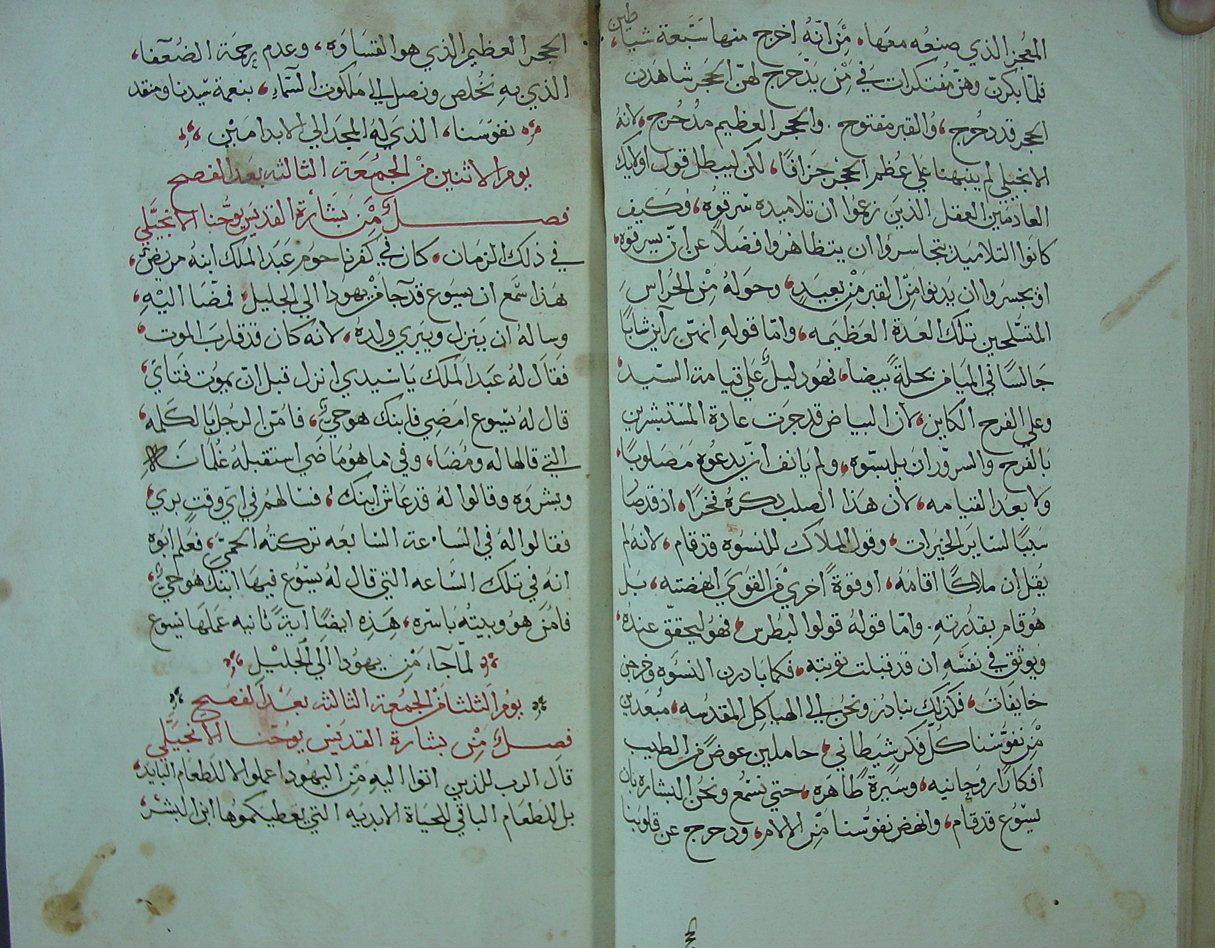 المعجز الذي صنعه معها، من انه اخرج منها سبعة شيا
طين
فلما بكرن وهن مفتكرات في من يدحرج لهن الحجر شاهدن
الحجر قد دحرج، والقبر مفتوح. والحجر العظيم مدحرج، لانه
الانجيلي لم ينبهنا علي عظم الحجر جزافا، لكن ليبطل قول اولايك
العادمين العقل الذين زعموا ان تلاميذه سرقوه، وكيف
كانوا التلاميذ يتجاسروا ان يتظاهروا فضلا عن ان يسرقوه،
او يجسروا ان يدنوا من القبر من بعيد، وحوله من الحراس
المتسلحين تلك العدة العظيمه، واما قوله انهن راين شابا
جالسا في الميامن بحلة بيضا، فهو دليل علي قيامة السيد
وعلي الفرح الكاين، لان البياض قد جرت عادة المستبشرين
بالفرح والسرور ان يلبسوه، ولم يانف ان يدعوه مصلوبا،
ولا بعد القيامه، لان هذا الصلب ذكره فخرا، اذ قد صار
سببا لساير الخيرات، وقول الملاك للنسوه قد قام، لانه لم
يقل ان ملاكا اقامه، او قوة اخري من القوي انهضته، بل
هو قام بقدرته. واما قوله قولوا لبطرس، فهو ليحقق عنده،
ويوثق في نفسه ان قد قبلت توبته، فكما بادرن النسوه وخرجن
خايفات، فكذلك نبادر ونحن الي الهياكل المقدسه، مبعدين
من نفوسنا كل فكر شيطاني، حاملين عوض من الطيب
افكارا روحانيه، وسيرة طاهره، حتي نسمع ونحن البشاره بان
يسوع قد قام، وانهض نفوسنا من الالام، ودحرج عن قلوبنا
الحجر العظيم الذي هو القساوه، وعدم رحمة الضعفا،
الذي به نخلص ونصل الي ملكوت السماء، بنعمة سيدنا ومنقد
نفوسنا، الذي له المجد الي الابد امين
يوم الاثنين من الجمعة الثالثه بعد الفصح
فصل من بشارة القديس يوحنا الانجيلي
في ذلك الزمان، كان في كفرناحوم عبد الملك ابنه مريض،
هذا سمع ان يسوع قد جا من يهودا الي الجليل، فمضا اليه،
وساله ان ينزل ويبري ولده، لانه كان قد قارب الموت،
فقال له عبد الملك يا سيدي انزل قبل ان يموت فتاي،
قال له يسوع امضي فابنك هو حي، فامن الرجل بالكلمه،
التي قالها له ومضا، وفيما هو ماضي استقبله غلمانه
وبشروه وقالوا له قد عاش ابنك، فسالهم في اي وقت بري،
فقالوا له في الساعة السابعه تركته الحمي، فعلم ابوه
انه في تلك الساعه التي قال له يسوع فيها ابنك هو حي،
فامن هو وبيته باسره، هذه ايضا اية ثانيه عملها يسوع
لما جاء من يهودا الي الجليل
يوم الثلثا من الجمعة الثالثه بعد الفصح
فصل من بشارة القديس يوحنا الانجيلي
قال الرب للذين اتوا اليه من اليهود اعملوا لا للطعام البايد،
بل للطعام الباقي للحياة الابديه التي يعطيكموها ابن البشر،